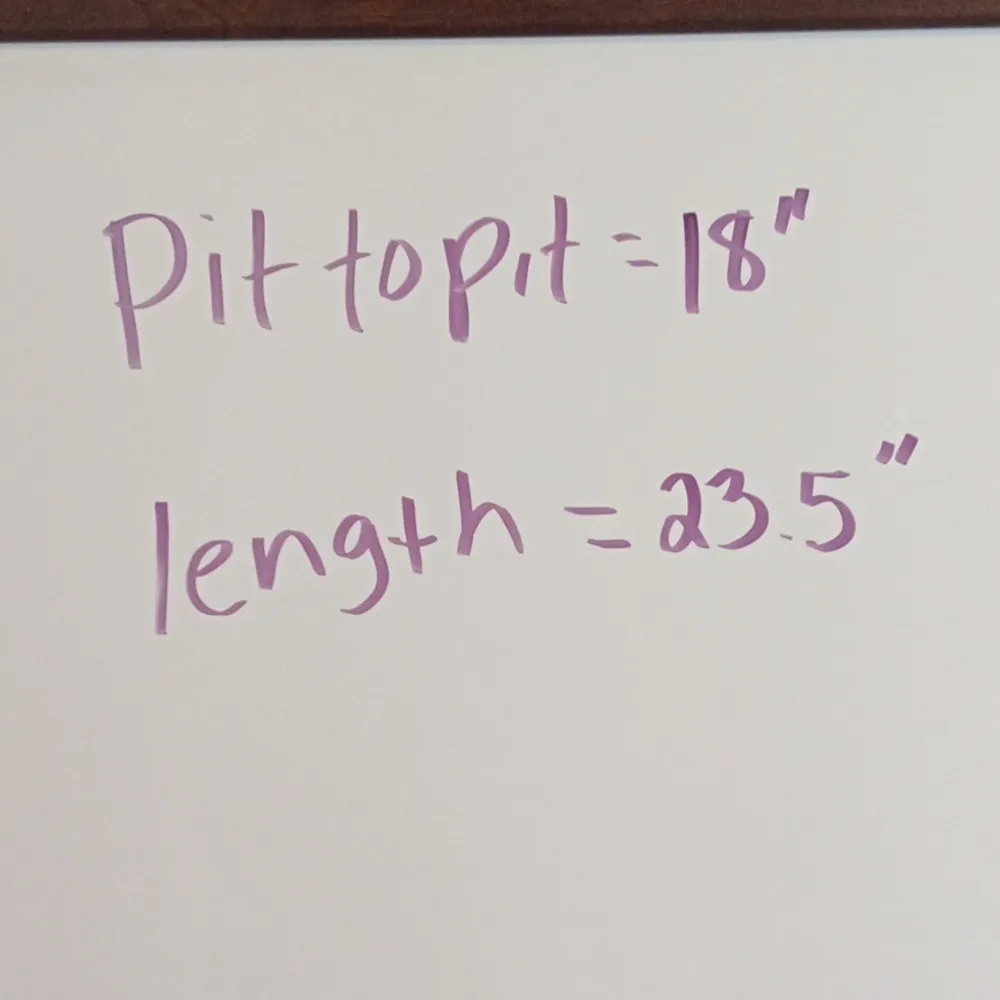 Pit to pit = 18"
length = 23.5"